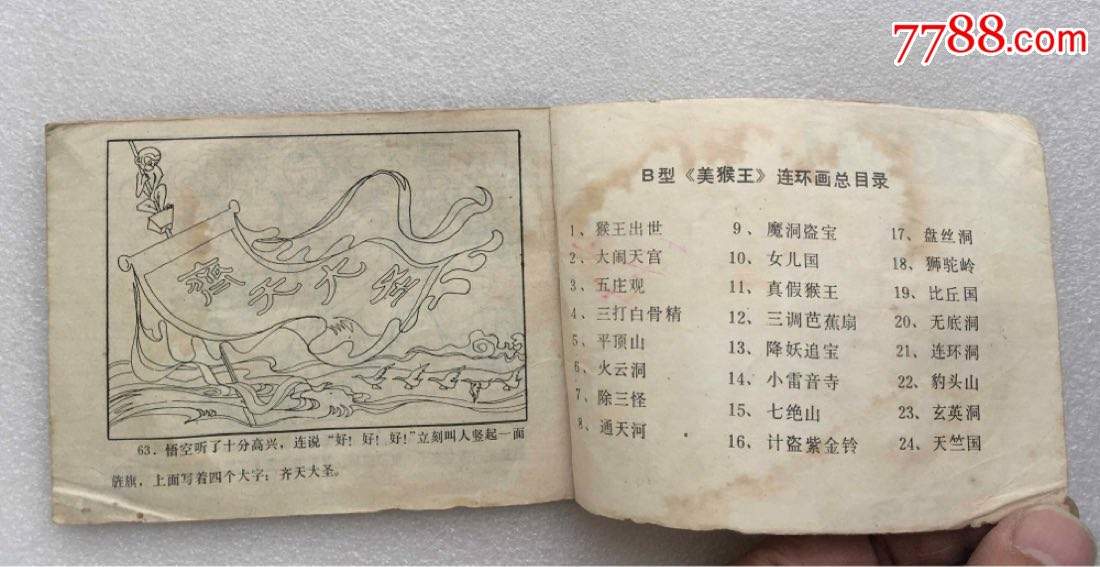 7788.com
齊天大圣
63．悟空听了十分高兴，连说“好！好！好！”立刻叫人竖起一面
旌旗，上面写着四个大字：齐天大圣。
B型《美猴王》连环画总目录
1、猴王出世
2、大闹天宫
3、五庄观
4、三打白骨精
5、平顶山
6、火云洞
7、除三怪
8、通天河
9、魔洞盗宝
10、女儿国
11、真假猴王
12、三调芭蕉扇
13、降妖追宝
14、小雷音寺
15、七绝山
16、计盗紫金铃
17、盘丝洞
18、狮驼岭
19、比丘国
20、无底洞
21、连环洞
22、豹头山
23、玄英洞
24、天竺国